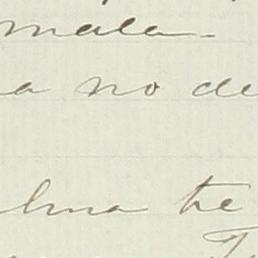 mala.
a no de
lma te